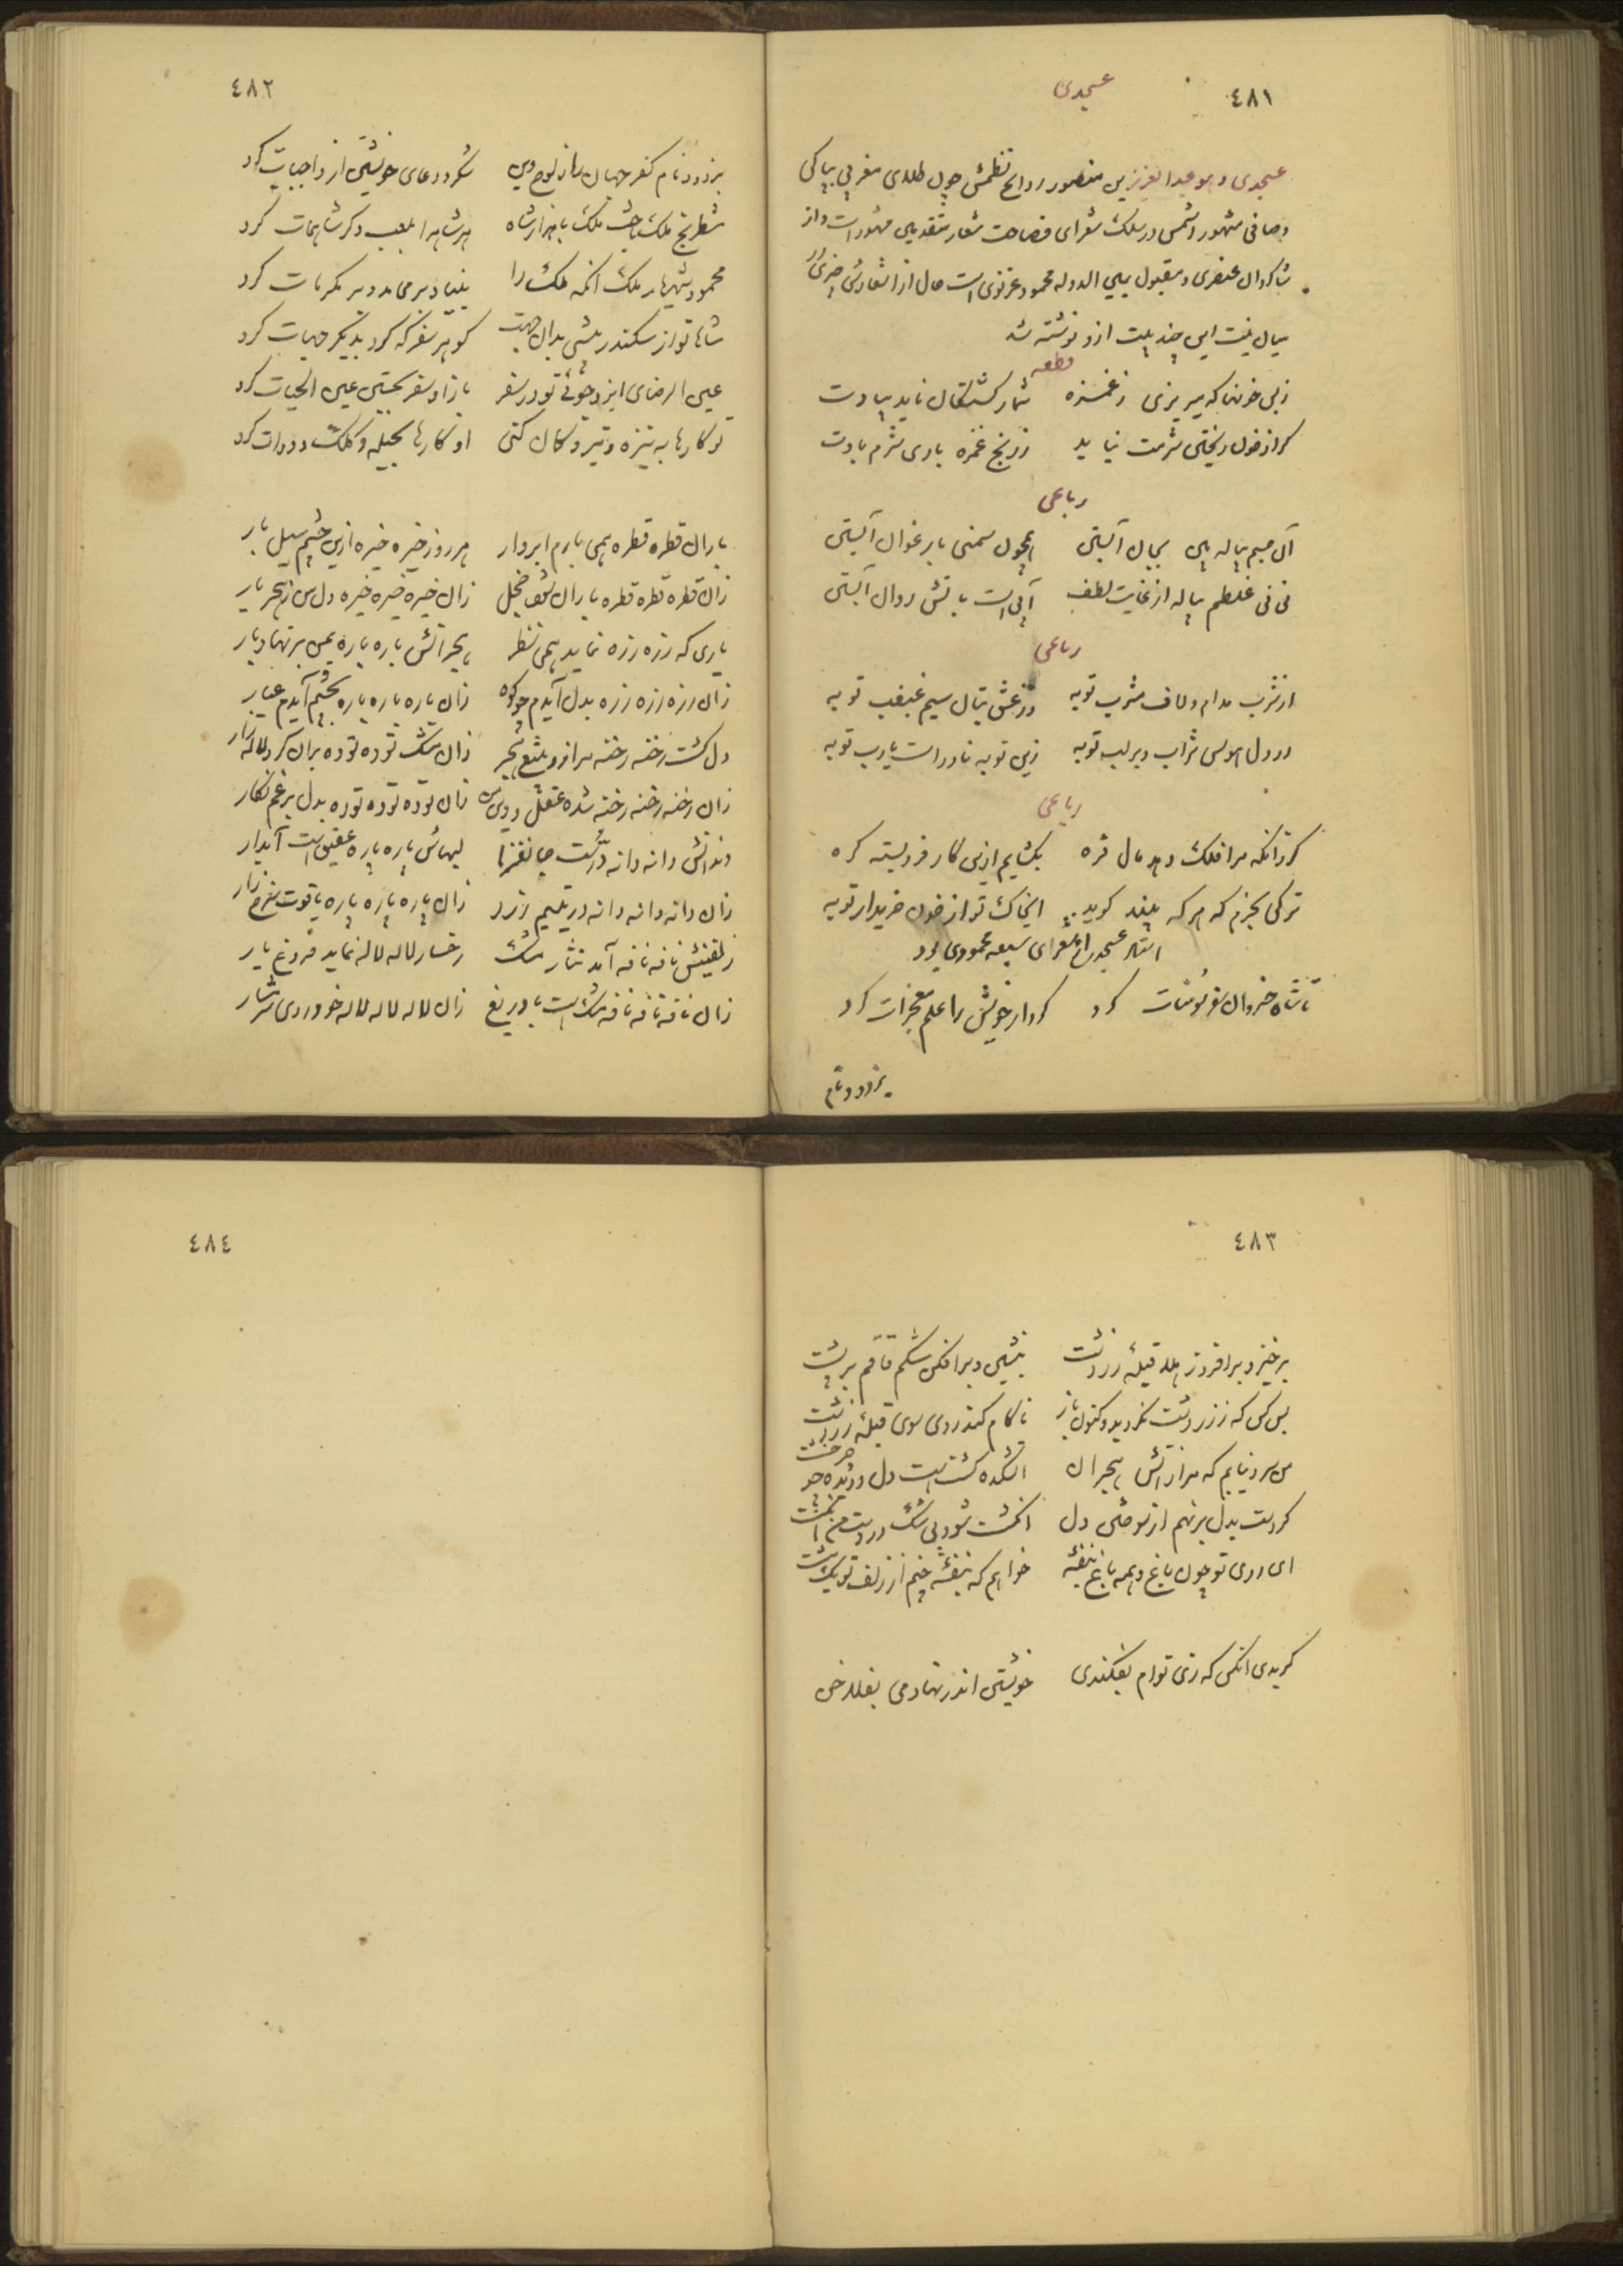 ٤٨١
عسجدی
عسجدی و هو عبدالعزیز بن منصور روایح نظمش چون طلای مغربی بپاکی
و صافی مشهور و اسمش در سلک شعرای فصاحت شعار متقدمین مشهور است و از
شاکردان عنصری و مقبول یمین الدوله محمود غزنوی است حال از اشعارش چیزی در
میان نیست این چند بیت ازو نوشته شد
قطعه
زبس خونها که میریزی زغمزه شمار کشتکان ناید بیادت
کر از خون ریختن شرمت نیاید ز رنج غمزه باری شرم بادت
رباعی
آن جسم پیاله بین بجان آبستن همچون سمنی بارغوان آبستن
نی نی غلطم پیاله از غایت لطف آبی است باتش روان آبستن
رباعی
از شرب مدام و لاف مشرب توبه وز عشق بتان سیم غبغب توبه
در دل هوس شراب و بر لب توبه زین توبه نادرست یارب توبه
رباعی
کر زانکه مرا فلک دهد مال فره بکشایم ازین کار فروبسته کره
ترکی بخرم که هر که بیند کوید ای خاک تو از خون خریدار تو به
استاد عسجدی از شعرای سبعه محمودی بود
تا شاه خسروان سفر سومنات کرد کردار خویش را علم معجزات کرد
بزدود نام
٤٨٢
بزدود نام کفر جهان را ز لوح دین شکر و دعای خویشتن از واجبات کرد
شطرنج ملک باخت ملک با هزار شاه هر شاه را بلعب دکر شاهمات کرد
محمود شهریار ملک آنکه ملک را بنیاد بر محامد و بر مکرمات کرد
شاها تو از سکندر پیشی بدان جهت کو هر سفر که کرد بدیکر جهات کرد
عین الرضای ایزد جوئی تو در سفر باز او سفر بجستن عین الحیات کرد
تو کارها به نیزه و تیر و کمان کنی او کارها بحیله و کلک و دوات کرد
باران قطره قطره همی بارم ابروار هر روز خیره خیره ازین چشم سیل بار
زان قطره قطره قطره باران شده خجل زان خیره خیره خیره دل من ز هجر یار
یاری که ذره ذره نماید همی نظر هجرانش باره باره بمن بر نهاد بار
زان ذره ذره ذره بدل آیدم چو کوه زان باره باره باره بچشم آیدم غبار
دل کشت رخنه رخنه مرا زو بتیغ هجر زان مشک توده توده بران کرد لاله زار
زان رخنه رخنه رخنه شده عقل و دین من زان توده توده توده بدل بر غم نکار
دندانش دانه دانه درّست جانفزا لبهاش پاره پاره عقیق است آبدار
زان دانه دانه دانه در یتیم زرد زان پاره پاره پاره یاقوت سرخ زار
زلفینش نافه نافه آمد نثار مشک رخسار لاله لاله نماید فروغ یار
زان نافه نافه نافه مشک است بادریغ زان لاله لاله لاله خودروی شرمسار
٤٨٣
برخیز و برافروز هلا قبلهٔ زردشت بنشین و برافکن شکم قاقم بر پشت
بس کس که ز زردشت بکردیده کنون باز ناکام کند روی سوی قبلهٔ زردشت
من سرد نیابم که مرا ز آتش هجران آتشکده کشته است دل و دیده چو چرخشت
کر دست بدل بر نهم از سوختن دل انکشت شود بی شک در دست من انکشت
ای روی تو چون باغ و همه باغ بنفشه خواهم که بنفشه چنم از زلف تو یک مشت
خویشتن اندر نهادمی بفلاخن
٤٨٤